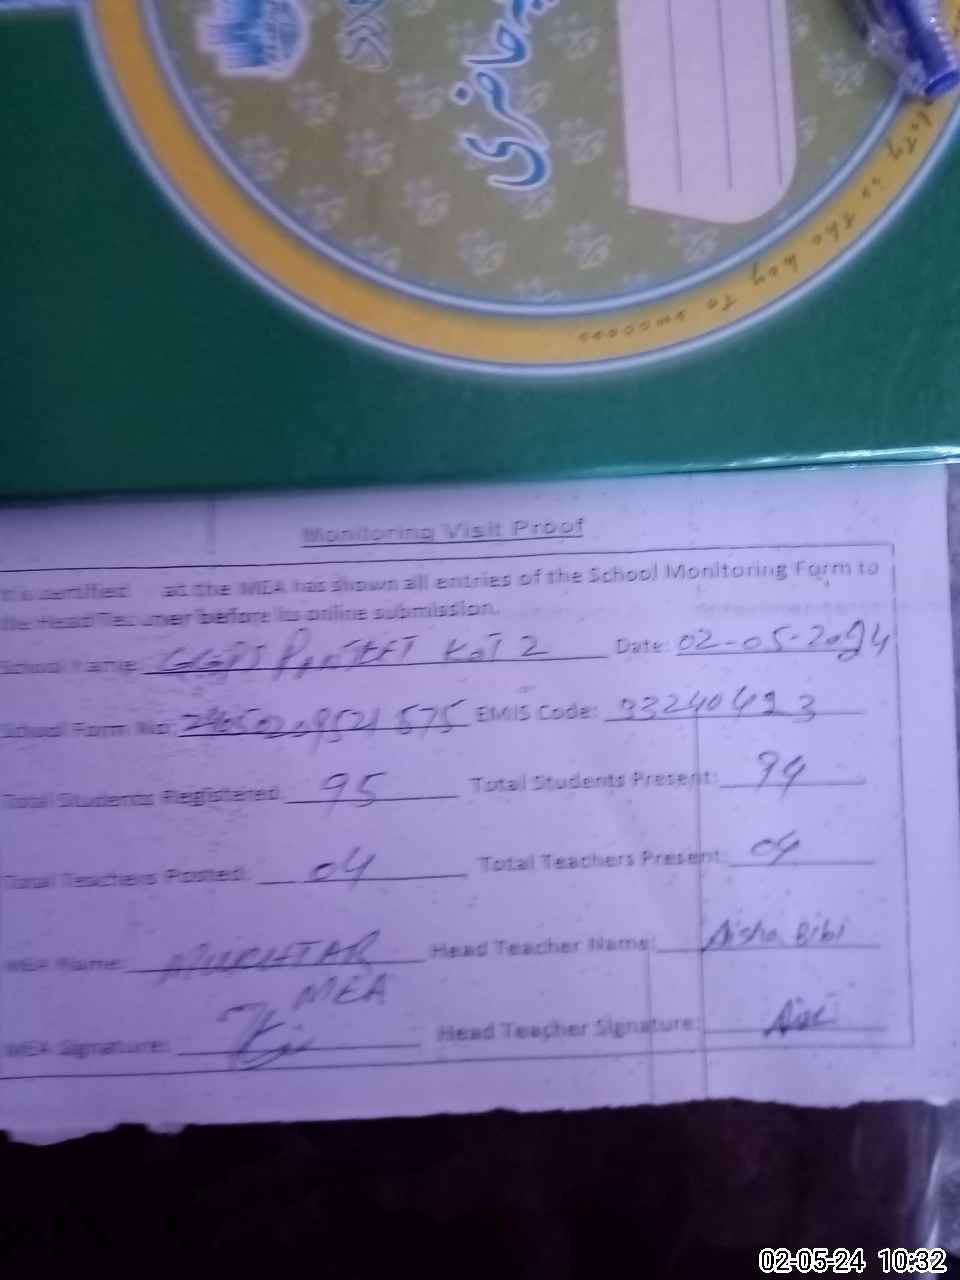 حاضری
Punctuality is the key to success.
Monitoring Visit Proof
It is certified that the MEA has shown all entries of the School Monitoring Form to
the Head Teacher before its online submission.
School Name: GGPS KOT 2 Date: 02-05-2024
School Form No: EMIS Code: 33240493
Total Students Registered: 95 Total Students Present: 94
Total Teachers Posted: 04 Total Teachers Present: 04
MEA Name: MUKHTAR Head Teacher Name: Aisha Bibi
MEA
MEA Signature: Head Teacher Signature:
02-05-24 10:32